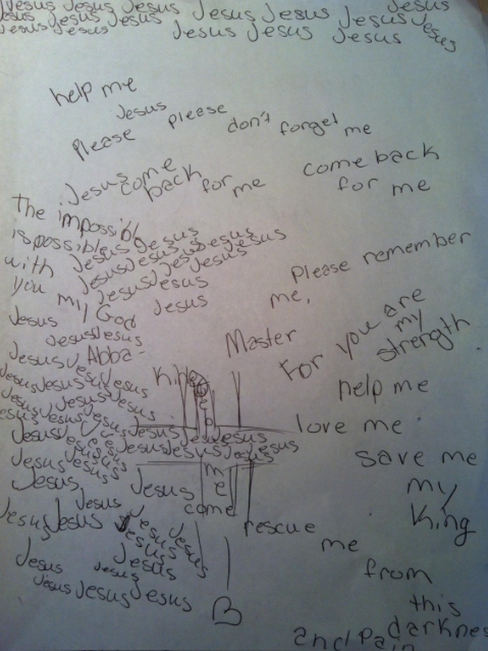 Jesus Jesus Jesus Jesus Jesus Jesus
Jesus Jesus Jesus Jesus Jesus
Jesus Jesus Jesus Jesus Jesus
help me
Jesus
Please please don't forget me
Jesus come back for me
come back for me
The impossibl
is possible Jesus Jesus
with Jesus Jesus Jesus Jesus
you Jesus Jesus Jesus Jesus
my God Jesus Jesus
Please remember
me,
Jesus
Jesus Jesus
Jesus Abba-
Master
For you are
my
strength
King
help me
Jesus Jesus Jesus
Jesus Jesus Jesus
Jesus Jesus Jesus Jesus Jesus
love me
Jesus Jesus Jesus Jesus Jesus
save me
Jesus Jesus
Jesus Jesus
me
come
my
King
Jesus Jesus Jesus Jesus Jesus
rescue
me
Jesus Jesus Jesus
from
Jesus Jesus Jesus
this
darknes
and Pain